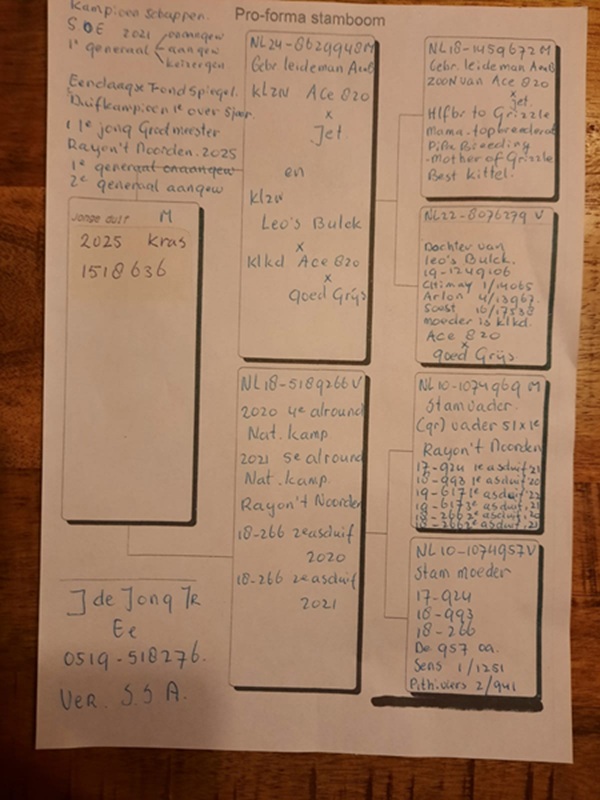 Kampioen schappen.
S O E 2021 onaangew
1e generaal aangew
keizergen.
Eendaagse Fond Spiegel.
Duifkampioen 1e over 5 jaar.
1e jong Grootmeester
Rayon't Noorden. 2025
1e generaal onaangew
2e generaal aangew
Pro-forma stamboom
Jonge duif M
2025 kras
1518636
NL24-8629948M
Gebr leideman
klzn Ace 820
x
Jet.
en
klzn
Leo's Bulck
x
klkd Ace 820
x
goed Grijs
NL18-5189266V
2020 4e alround
Nat. kamp
2021 5e alround
Nat. kamp.
Rayon't Noorden
18-266 2e asduif
2020
18-266 2e asduif
2021
NL18-1459672M
Gebr. leideman
zoon van Ace 820
x
Jet.
Hlfbr to Grizzle
Mama. topbreeder
Pipa Breeding
Mother of Grizzle
Best kittel.
NL22-8076279 V
Dochter van
leo's Bulck.
19-1249106
Chimay 1/14065
Arlon 4/13967.
Soest 10/17538
moeder is klkd.
Ace 820
x
goed Grijs
NL10-1074969 M
Stamvader.
(gr) vader 51x1e
Rayon't Noorden
17-924 1e asduif 21
18-993 1e asduif 20
19-617 1e asduif 22
19-617 3e asduif 21
18-266 2e asduif 20
18-266 2e asduif 21
NL10-1074957V
Stam moeder
17-924
18-993
18-266
De 957 oa.
Sens 1/1251
Pithiviers 2/941
J de Jong JR
Ee
0519-518276.
Ver. S.S A.